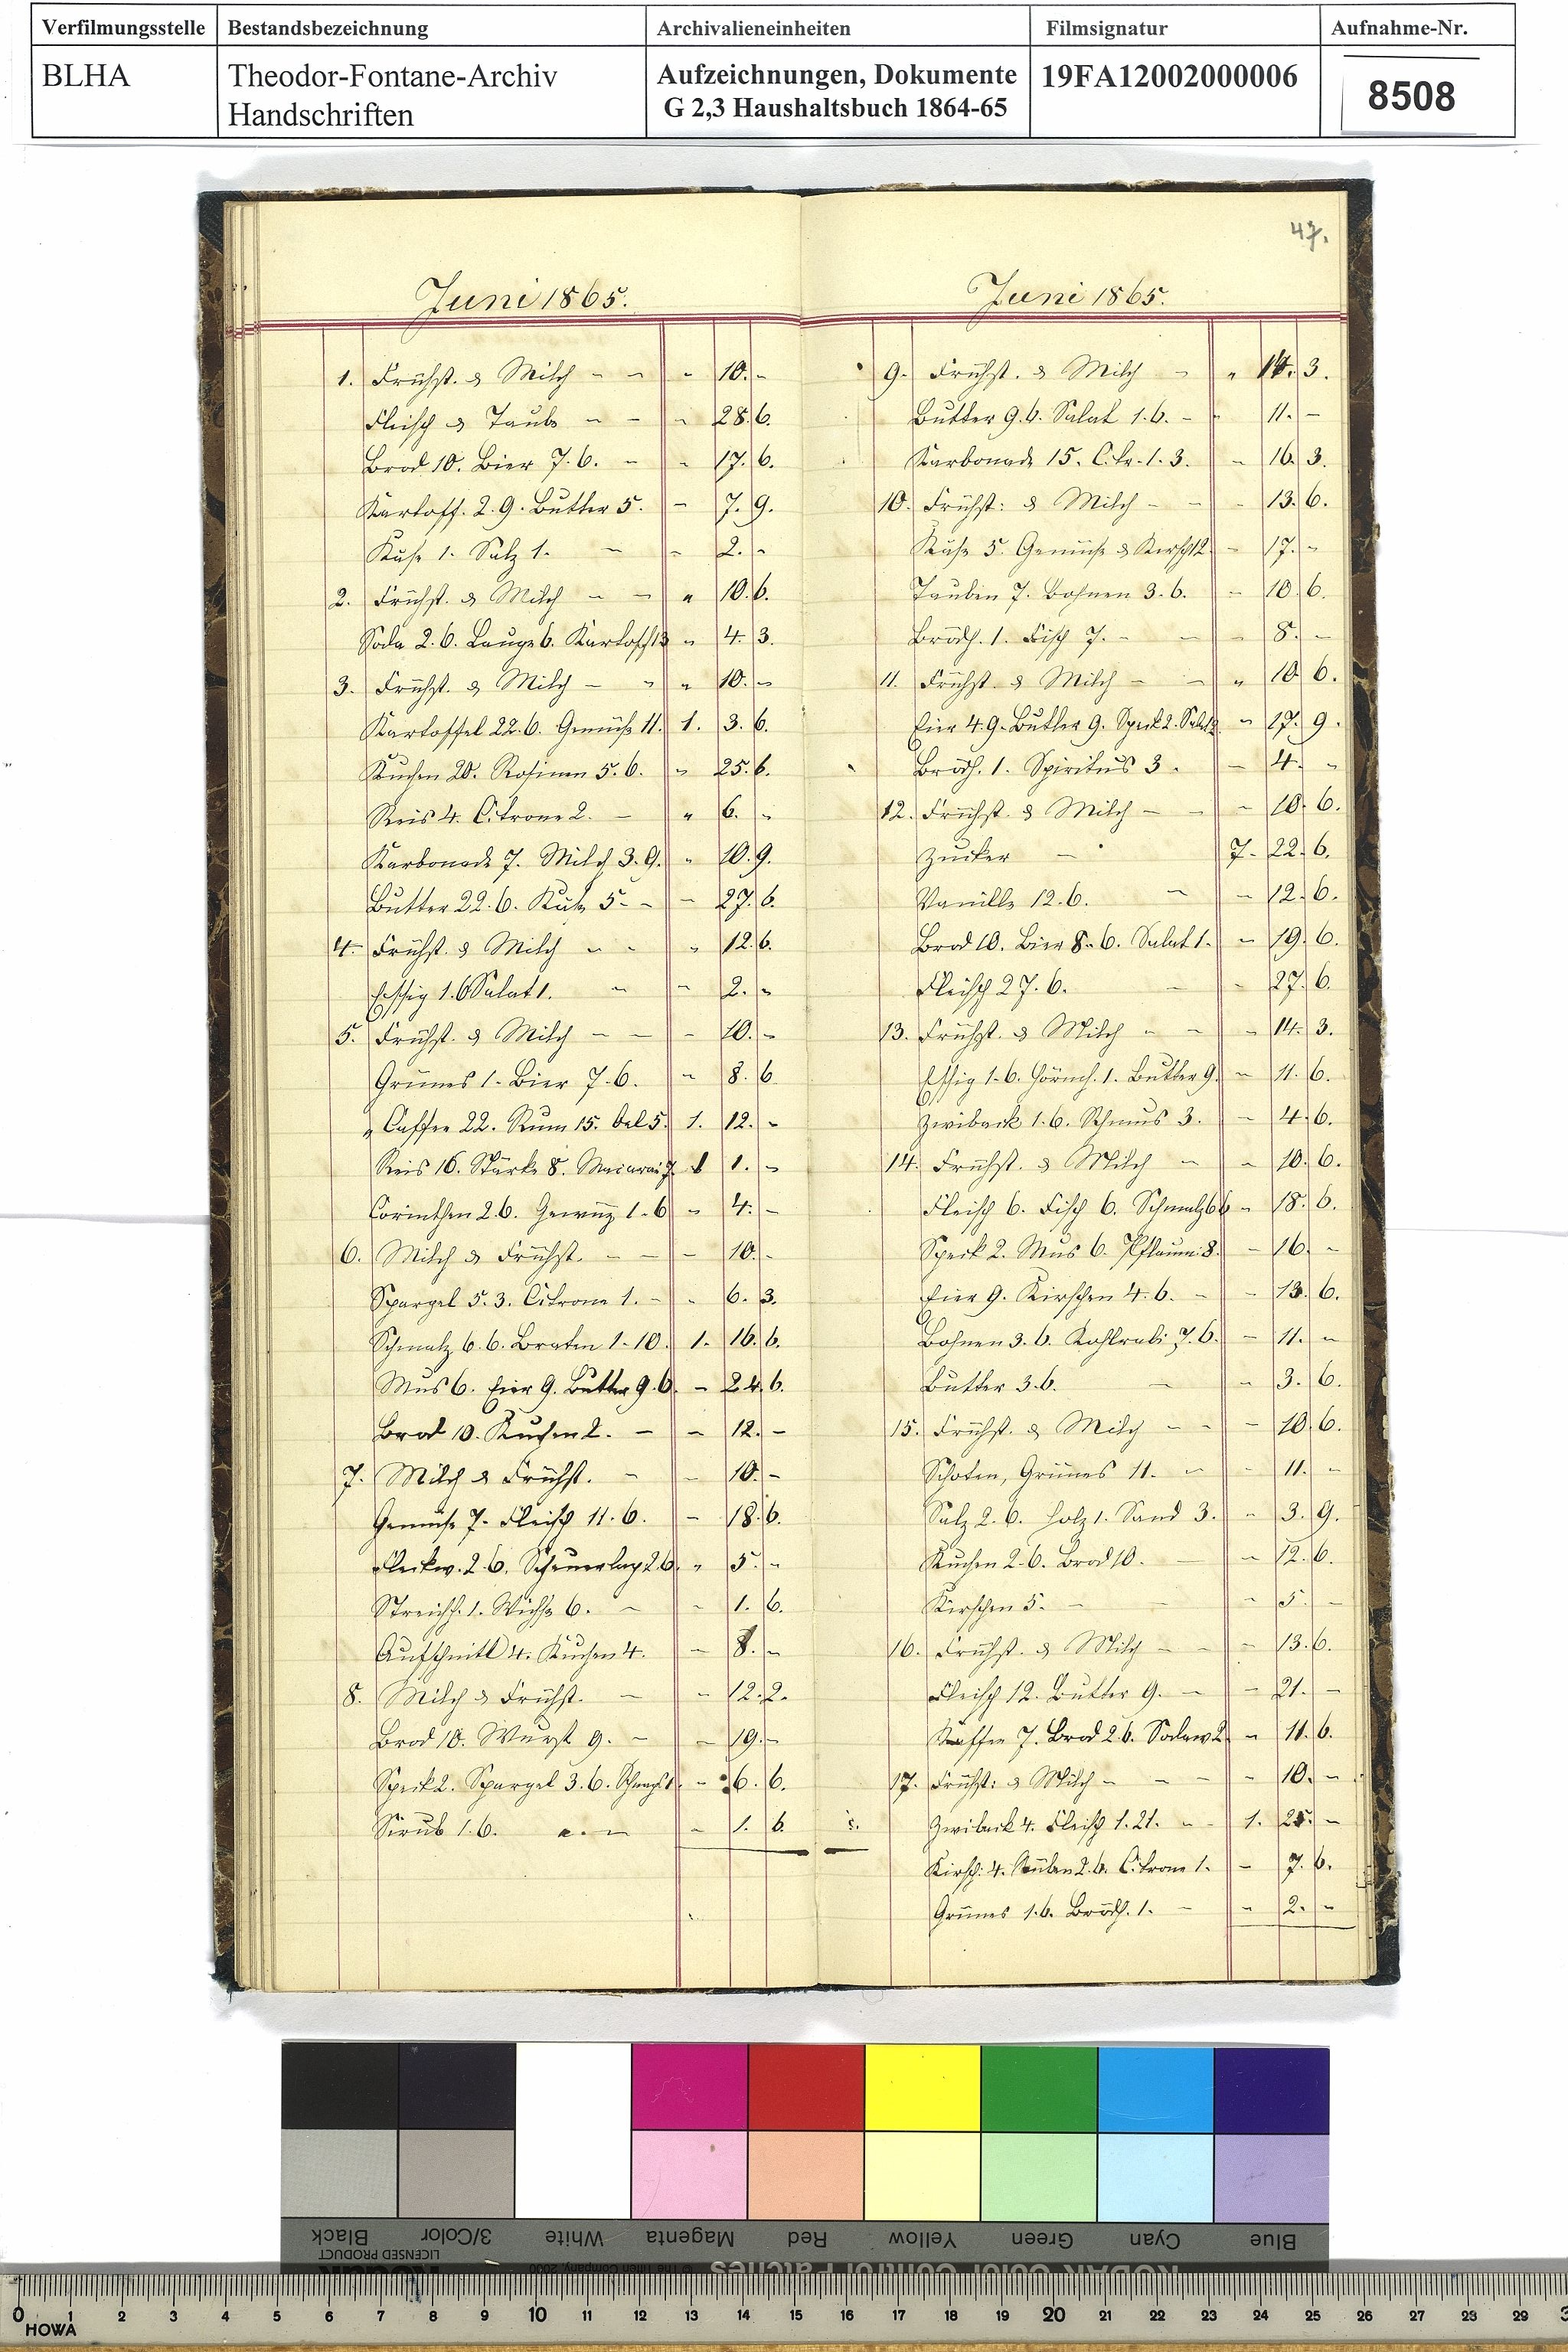 Verfilmungsstelle Bestandsbezeichnung Archivalieneinheiten Filmsignatur Aufnahme-Nr.
BLHA Theodor-Fontane-Archiv Handschriften Aufzeichnungen, Dokumente G 2,3 Haushaltsbuch 1864-65 19FA12002000006 8508
Juni 1865.
1. Frühst. & Milch - - - 10. -
Fleisch & Taube - - - 28. 6.
Brod 10. Bier 7. 6. - - 17. 6.
Kartoff. 2. 9. Butter 5. - 7. 9.
Käse 1. Salz 1. - - 2. -
2. Frühst. & Milch - - " 10. 6.
Soda 2. 6. Lauge 6. Kartoff 13 - 4. 3.
3. Frühst. & Milch - - - 10. -
Kartoffel 22. 6. Gemüse 11. 1. 3. 6.
Kuchen 20. Rosinen 5. 6. - 25. 6.
Reis 4. Citrone 2. - " 6. -
Karbonade 7. Milch 3. 9. - 10. 9.
Butter 22. 6. Käse 5. - - 27. 6.
4. Frühst. & Milch - - - 12. 6.
Essig 1. 6 Salat 1. - - 2. -
5. Frühst. & Milch - - - 10. -
Grünes 1. Bier 7. 6. - 8. 6
Caffee 22. Rum 15. Oel 5. 1. 12. -
Reis 16. Stärke 8. 7 1 1. -
Corinthen 2 6. Gewürz 1. 6 - 4. -
6. Milch & Frühst. - - - 10. -
Spargel 5. 3. Citrone 1. - - 6. 3.
Schmalz 6. 6. Braten 1. 10. 1. 16. 6.
Mus 6. Eier 9. Butter 9. 6. - 24. 6.
Brod 10. Kuchen 2. - - 12. -
7. Milch & Frühst. - - 10. -
Gemüse 7. Fleisch 11. 6. - 18. 6.
Fleckw. 2. 6. Scheuerlap 2 6. - 5. -
Streichh. 1. Wichse 6. - - 1. 6.
Aufschnitt 4. Kuchen 4. - 8. -
8. Milch & Frühst. - - 12. 2.
Brod 10. Wurst 9. - - 19. -
Speck 2. Spargel 3. 6. - 6. 6.
Sirub 1. 6. - - 1. 6.
47.
Juni 1865.
9. Frühst. & Milch - " 14. 3.
Butter 9. 6. Salat 1. 6. - - 11. -
Karbonade 15. Citr. 1. 3. - 16. 3.
10. Frühst: & Milch - - - 13. 6.
Käse 5. Gemüse & Kirsch 12. - 17. -
Tauben 7. Bohnen 3. 6. - 10. 6.
Brödh. 1. Fisch 7. - - - 8. -
11. Frühst. & Milch - - " 10. 6.
Eier 4. 9. Butter 9. Speck 2. Salat 2 - 17. 9.
Brödh. 1. Spiritus 3. - 4. -
12. Frühst. & Milch - - - 10. 6.
Zucker - 7. 22. 6.
Vanille 12. 6. - - 12. 6.
Brod 10. Bier 8. 6. Salat 1. - 19. 6.
Fleisch 27. 6. - - 27. 6.
13. Frühst. & Milch - - - 14. 3.
Essig 1. 6. Hörnch. 1. Butter 9. - 11. 6.
Zwiback 1. 6. 3. - 4. 6.
14. Frühst. & Milch - - 10. 6.
Fleisch 6. Fisch 6. Schmalz 6 6 - 18. 6.
Speck 2. Mus 6. Pflaum. 8. - 16. -
Eier 9. Kirschen 4. 6. - - 13. 6.
Bohnen 3. 6. Kohlrabi 7. 6. - 11. -
Butter 3. 6. - - 3. 6.
15. Frühst. & Milch - - - 10. 6.
Schoten, Grünes 11. - - 11. -
Salz 2. 6. Holz 1. Sand 3. - 3. 9.
Kuchen 2. 6. Brod 10. - - 12. 6.
Kirschen 5. - - - 5. -
16. Frühst. & Milch - - - 13. 6.
Fleisch 12. Butter 9. - - 21. -
Kaffee 7. Brod 2. 6. Sodaw 2. - 11. 6.
17. Frühst: & Milch - - - - 10. -
Zwiback 4. Fleisch 1. 21. - - 1. 25. -
Kirsch: 4. Rüben 2. 6. Citrone 1. - 7. 6.
Grünes 1. 6. Brödh. 1. - - 2. -
Black 3/Color White Magenta Red Yellow Green Cyan Blue
LICENSED PRODUCT
KODAK Color Control Patches
0 1 2 3 4 5 6 7 8 9 10 11 12 13 14 15 16 17 18 19 20 21 22 23 24 25 26 27 28 29
HOWA